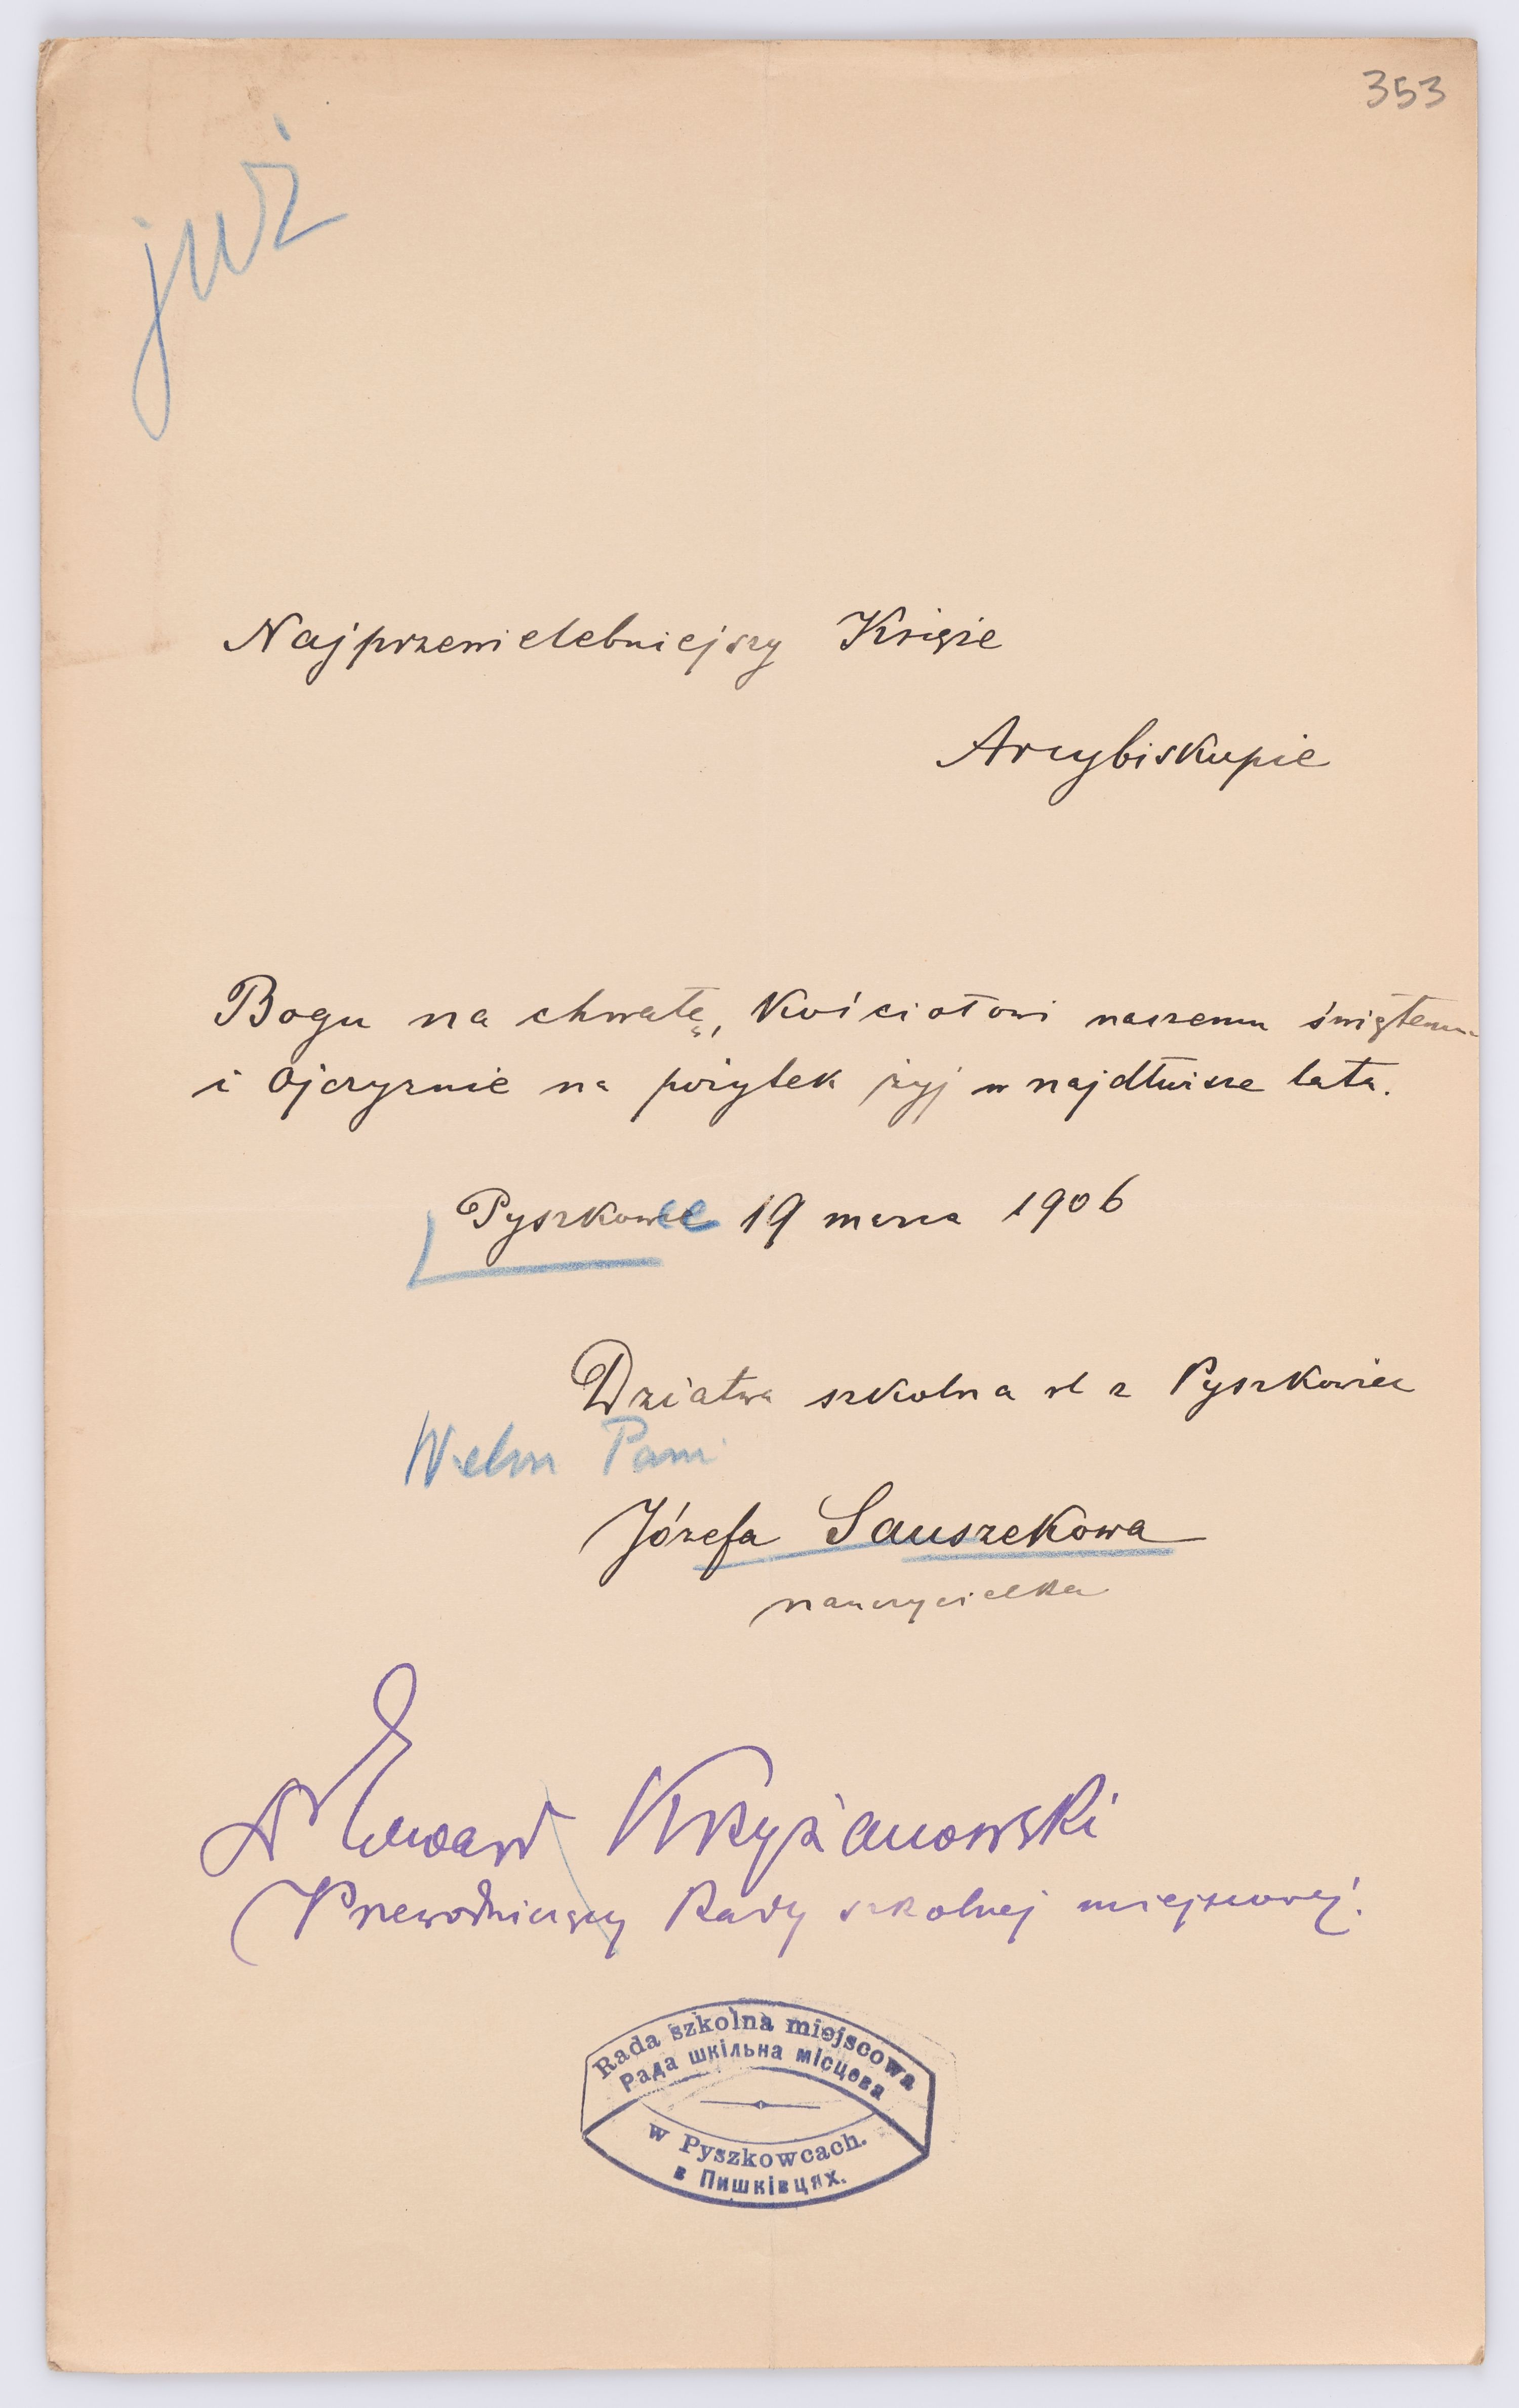 353
już
Najprzewielebniejszy Księże
Arcybiskupie
Bogu na chwałę, Kościołowi naszemu świętemu
i Ojczyznie na pożytek żyj w najdłuższe lata.
Pyszkowce 19 marca 1906
Dziatwa szkolna z Pyszkowiec
Wielm Pani
Józefa Sauszekowa
nauczycielka
Edward Krzyżanowski
Przewodniczący Rady szkolnej miejscowej.
Rada szkolna miejscowa
Рада шкільна місцева
w Pyszkowcach.
в Пишківцях.